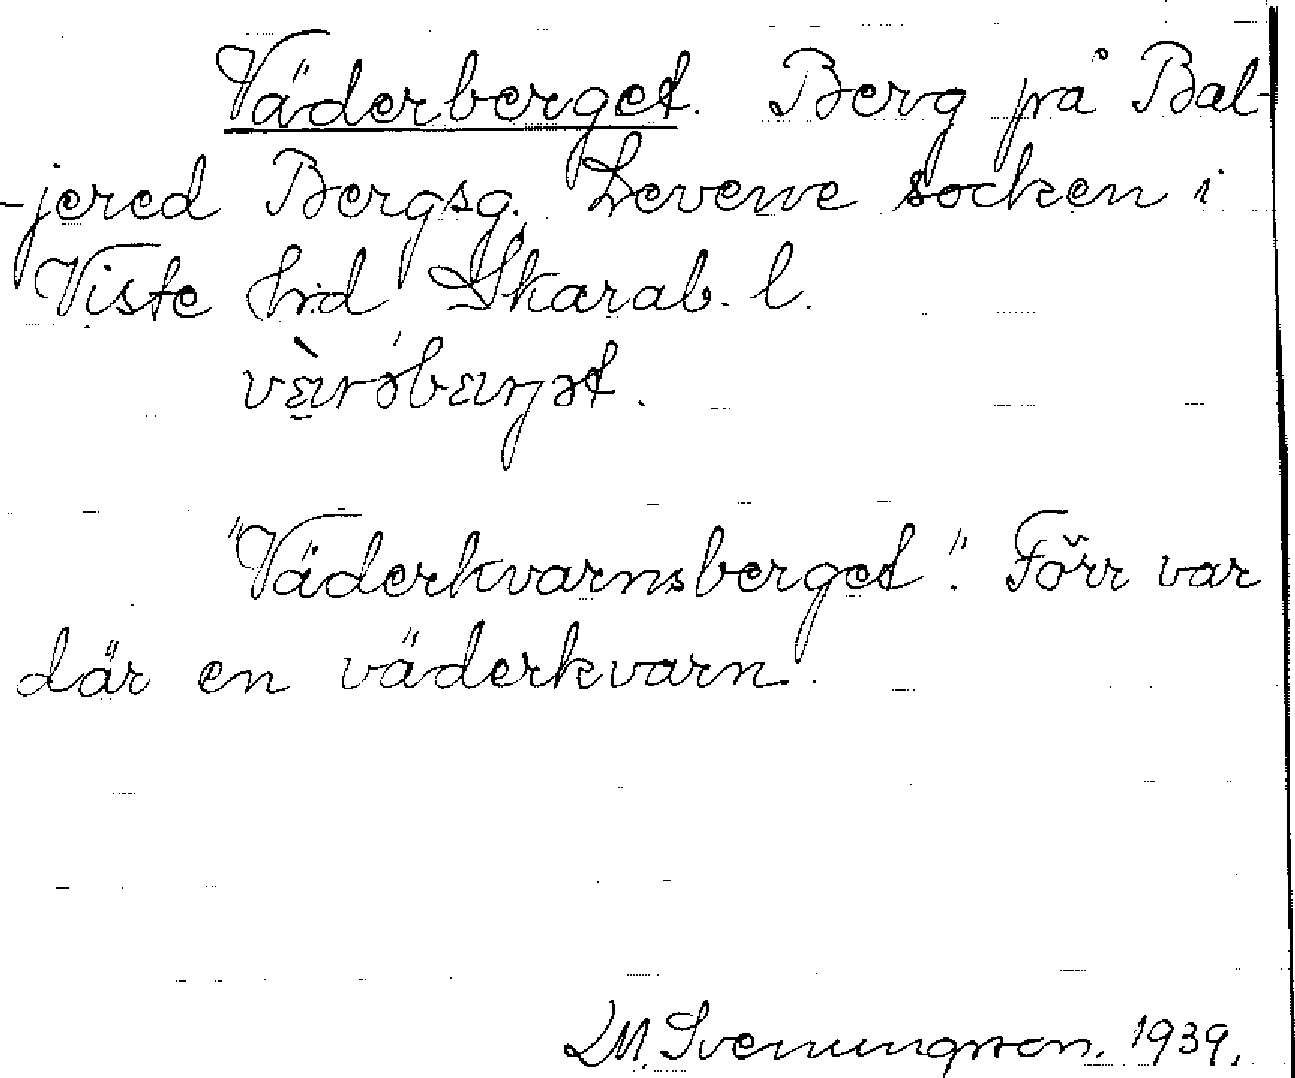 Väderberget. Berg på Bal-
-jered Bergsg. Levene socken i
Viste hrd Skarab. l.
"Väderkvarnsberget". Förr var
där en väderkvarn.
LM. Svenungsson. 1939.